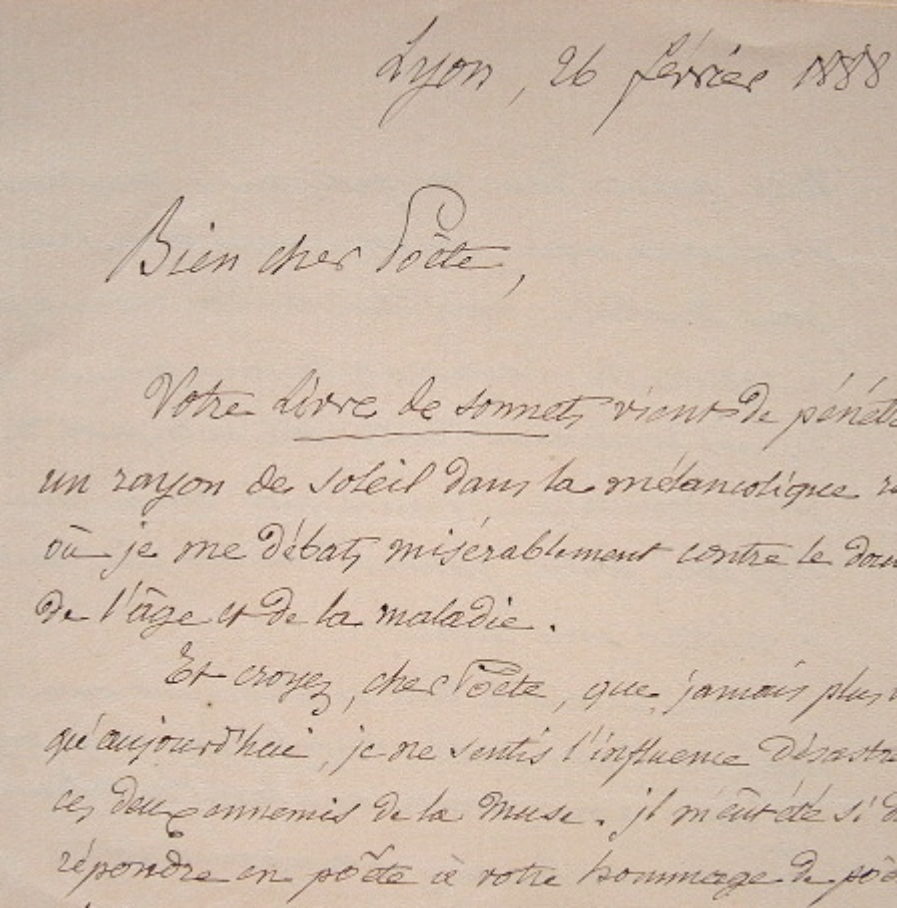 Lyon, 26 février 1888
Bien cher Poëte,
Votre Livre de sonnets vient de
un rayon de soleil dans la mélancolique
où je me débats misérablement contre le
de l'âge et de la maladie.
Et croyez, cher Poëte, que jamais plus
qu'aujourd'hui, je ne sentis l'influence
ces deux ennemis de la Muse. Il m'eût été si
répondre en poëte à votre hommage de